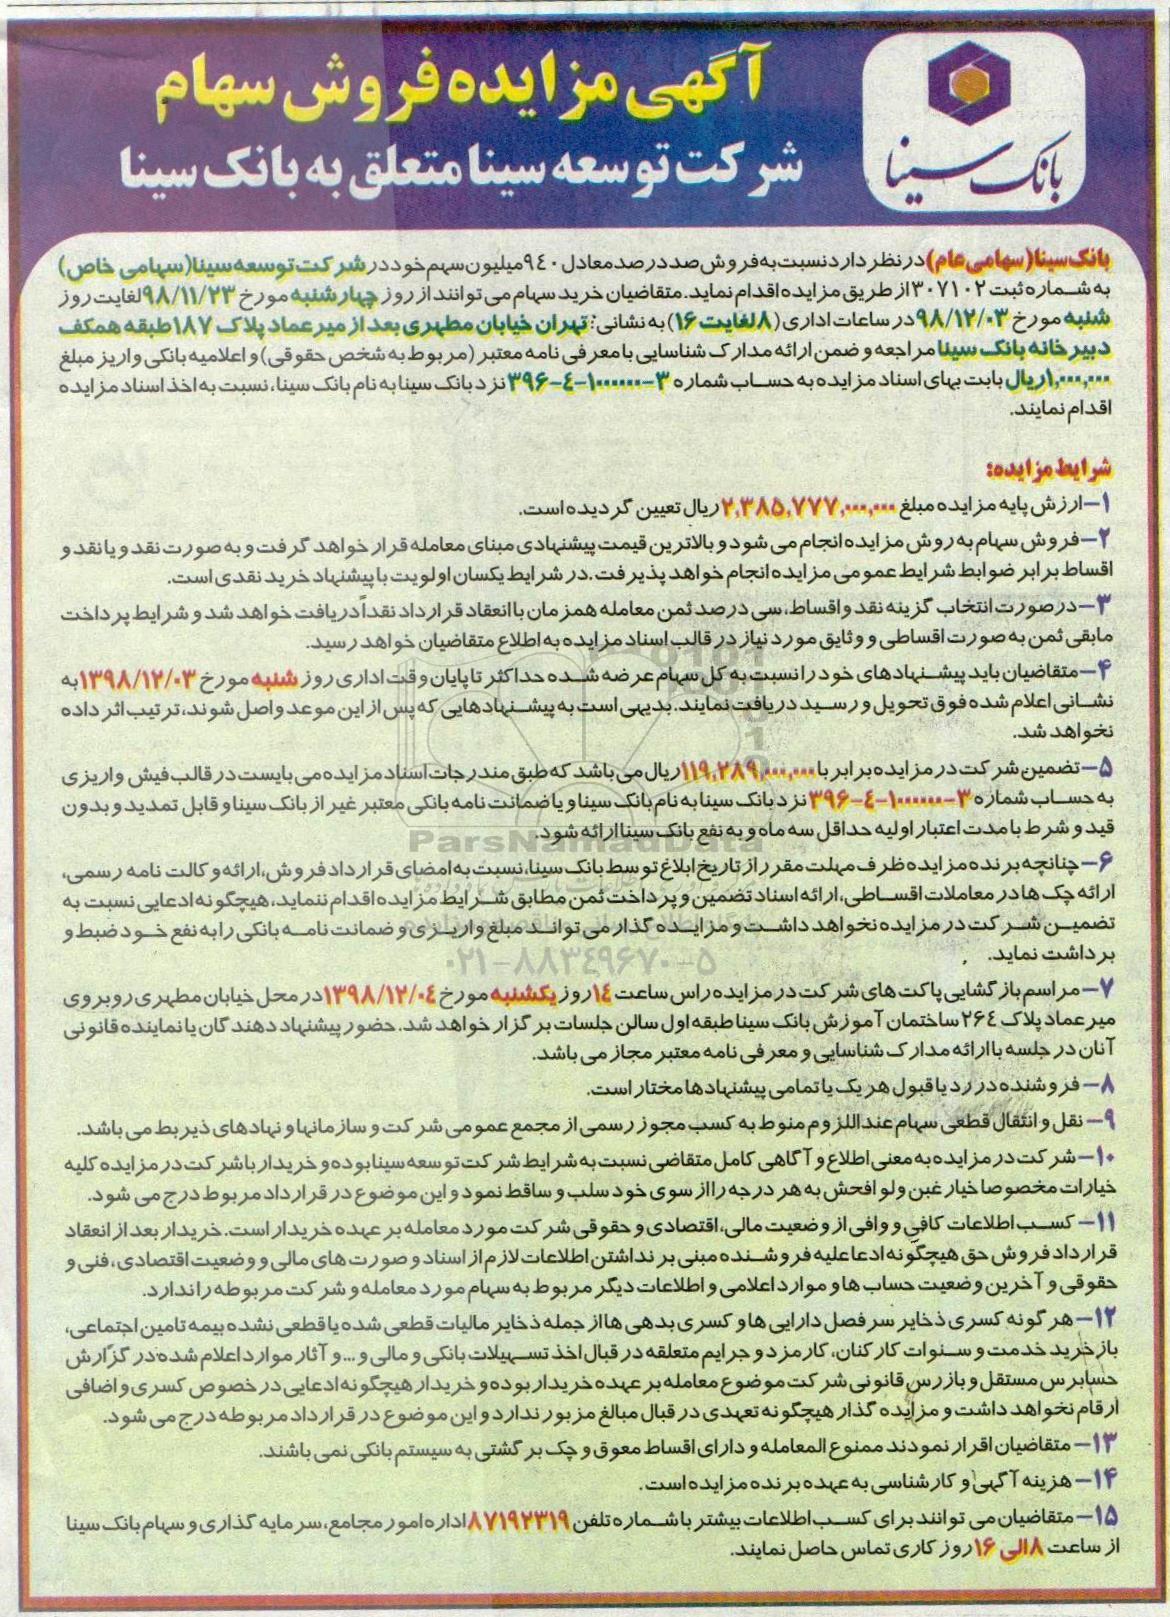 آگهی مزایده فروش سهام
شرکت توسعه سینا متعلق به بانک سینا
بانک سینا
بانک سینا (سهامی عام) در نظر دارد نسبت به فروش صد در صد معادل ۹۴۰ میلیون سهم خود در شرکت توسعه سینا (سهامی خاص)
به شماره ثبت ۳۰۷۱۰۲ از طریق مزایده اقدام نماید. متقاضیان خرید سهام می توانند از روز چهارشنبه مورخ ۹۸/۱۱/۲۳ لغایت روز
شنبه مورخ ۹۸/۱۲/۰۳ در ساعات اداری (۸ لغایت ۱۶) به نشانی: تهران خیابان مطهری بعد از میرعماد پلاک ۱۸۷ طبقه همکف
دبیرخانه بانک سینا مراجعه و ضمن ارائه مدارک شناسایی با معرفی نامه معتبر (مربوط به شخص حقوقی) و اعلامیه بانکی واریز مبلغ
۱,۰۰۰,۰۰۰ ریال بابت بهای اسناد مزایده به حساب شماره ۳-۱۰۰۰۰۰۰-۴-۳۹۶ نزد بانک سینا به نام بانک سینا، نسبت به اخذ اسناد مزایده
اقدام نمایند.
شرایط مزایده:
۱- ارزش پایه مزایده مبلغ ۲,۳۸۵,۷۷۷,۰۰۰,۰۰۰ ریال تعیین گردیده است.
۲- فروش سهام به روش مزایده انجام می شود و بالاترین قیمت پیشنهادی مبنای معامله قرار خواهد گرفت و به صورت نقد و یا نقد و
اقساط برابر ضوابط شرایط عمومی مزایده انجام خواهد پذیرفت. در شرایط یکسان اولویت با پیشنهاد خرید نقدی است.
۳- در صورت انتخاب گزینه نقد و اقساط، سی درصد ثمن معامله همزمان با انعقاد قرارداد نقداً دریافت خواهد شد و شرایط پرداخت
مابقی ثمن به صورت اقساطی و وثایق مورد نیاز در قالب اسناد مزایده به اطلاع متقاضیان خواهد رسید.
۴- متقاضیان باید پیشنهادهای خود را نسبت به کل سهام عرضه شده حداکثر تا پایان وقت اداری روز شنبه مورخ ۱۳۹۸/۱۲/۰۳ به
نشانی اعلام شده فوق تحویل و رسید دریافت نمایند. بدیهی است به پیشنهادهایی که پس از این موعد واصل شوند، ترتیب اثر داده
نخواهد شد.
۵- تضمین شرکت در مزایده برابر با ۱۱۹,۲۸۹,۰۰۰,۰۰۰ ریال می باشد که طبق مندرجات اسناد مزایده می بایست در قالب فیش واریزی
به حساب شماره ۳-۱۰۰۰۰۰۰-۴-۳۹۶ نزد بانک سینا به نام بانک سینا و یا ضمانت نامه بانکی معتبر غیر از بانک سینا و قابل تمدید و بدون
قید و شرط با مدت اعتبار اولیه حداقل سه ماه و به نفع بانک سینا ارائه شود.
ParsNamadData
۶- چنانچه برنده مزایده ظرف مهلت مقرر از تاریخ ابلاغ توسط بانک سینا، نسبت به امضای قرارداد فروش، ارائه وکالت نامه رسمی،
ارائه چک ها در معاملات اقساطی، ارائه اسناد تضمین و پرداخت ثمن مطابق شرایط مزایده اقدام ننماید، هیچگونه ادعایی نسبت به
تضمین شرکت در مزایده نخواهد داشت و مزایده گذار می تواند مبلغ واریزی و ضمانت نامه بانکی را به نفع خود ضبط و
برداشت نماید.
۰۲۱-۸۸۳۴۹۶۷۰-۵
۷- مراسم بازگشایی پاکت های شرکت در مزایده راس ساعت ۱۴ روز یکشنبه مورخ ۱۳۹۸/۱۲/۰۴ در محل خیابان مطهری روبروی
میرعماد پلاک ۲۶۴ ساختمان آموزش بانک سینا طبقه اول سالن جلسات برگزار خواهد شد. حضور پیشنهاد دهندگان یا نماینده قانونی
آنان در جلسه با ارائه مدارک شناسایی و معرفی نامه معتبر مجاز می باشد.
۸- فروشنده در رد یا قبول هر یک یا تمامی پیشنهادها مختار است.
۹- نقل و انتقال قطعی سهام عنداللزوم منوط به کسب مجوز رسمی از مجمع عمومی شرکت و سازمانها و نهادهای ذیربط می باشد.
۱۰- شرکت در مزایده به معنی اطلاع و آگاهی کامل متقاضی نسبت به شرایط شرکت توسعه سینا بوده و خریدار با شرکت در مزایده کلیه
خیارات مخصوصا خیار غبن ولو افحش به هر درجه را از سوی خود سلب و ساقط نمود و این موضوع در قرارداد مربوط درج می شود.
۱۱- کسب اطلاعات کافی و وافی از وضعیت مالی، اقتصادی و حقوقی شرکت مورد معامله بر عهده خریدار است. خریدار بعد از انعقاد
قرارداد فروش حق هیچگونه ادعا علیه فروشنده مبنی بر نداشتن اطلاعات لازم از اسناد و صورت های مالی و وضعیت اقتصادی، فنی و
حقوقی و آخرین وضعیت حساب ها و موارد اعلامی و اطلاعات دیگر مربوط به سهام مورد معامله و شرکت مربوطه را ندارد.
۱۲- هر گونه کسری ذخایر سرفصل دارایی ها و کسری بدهی ها از جمله ذخایر مالیات قطعی شده یا قطعی نشده بیمه تامین اجتماعی،
بازخرید خدمت و سنوات کارکنان، کارمزد و جرایم متعلقه در قبال اخذ تسهیلات بانکی و مالی و ... و آثار موارد اعلام شده در گزارش
حسابرس مستقل و بازرس قانونی شرکت موضوع معامله بر عهده خریدار بوده و خریدار هیچگونه ادعایی در خصوص کسری و اضافی
ارقام نخواهد داشت و مزایده گذار هیچگونه تعهدی در قبال مبالغ مزبور ندارد و این موضوع در قرارداد مربوطه درج می شود.
۱۳- متقاضیان اقرار نمودند ممنوع المعامله و دارای اقساط معوق و چک برگشتی به سیستم بانکی نمی باشند.
۱۴- هزینه آگهی و کارشناسی به عهده برنده مزایده است.
۱۵- متقاضیان می توانند برای کسب اطلاعات بیشتر با شماره تلفن ۸۷۱۹۲۳۱۹ اداره امور مجامع، سرمایه گذاری و سهام بانک سینا
از ساعت ۸ الی ۱۶ روز کاری تماس حاصل نمایند.